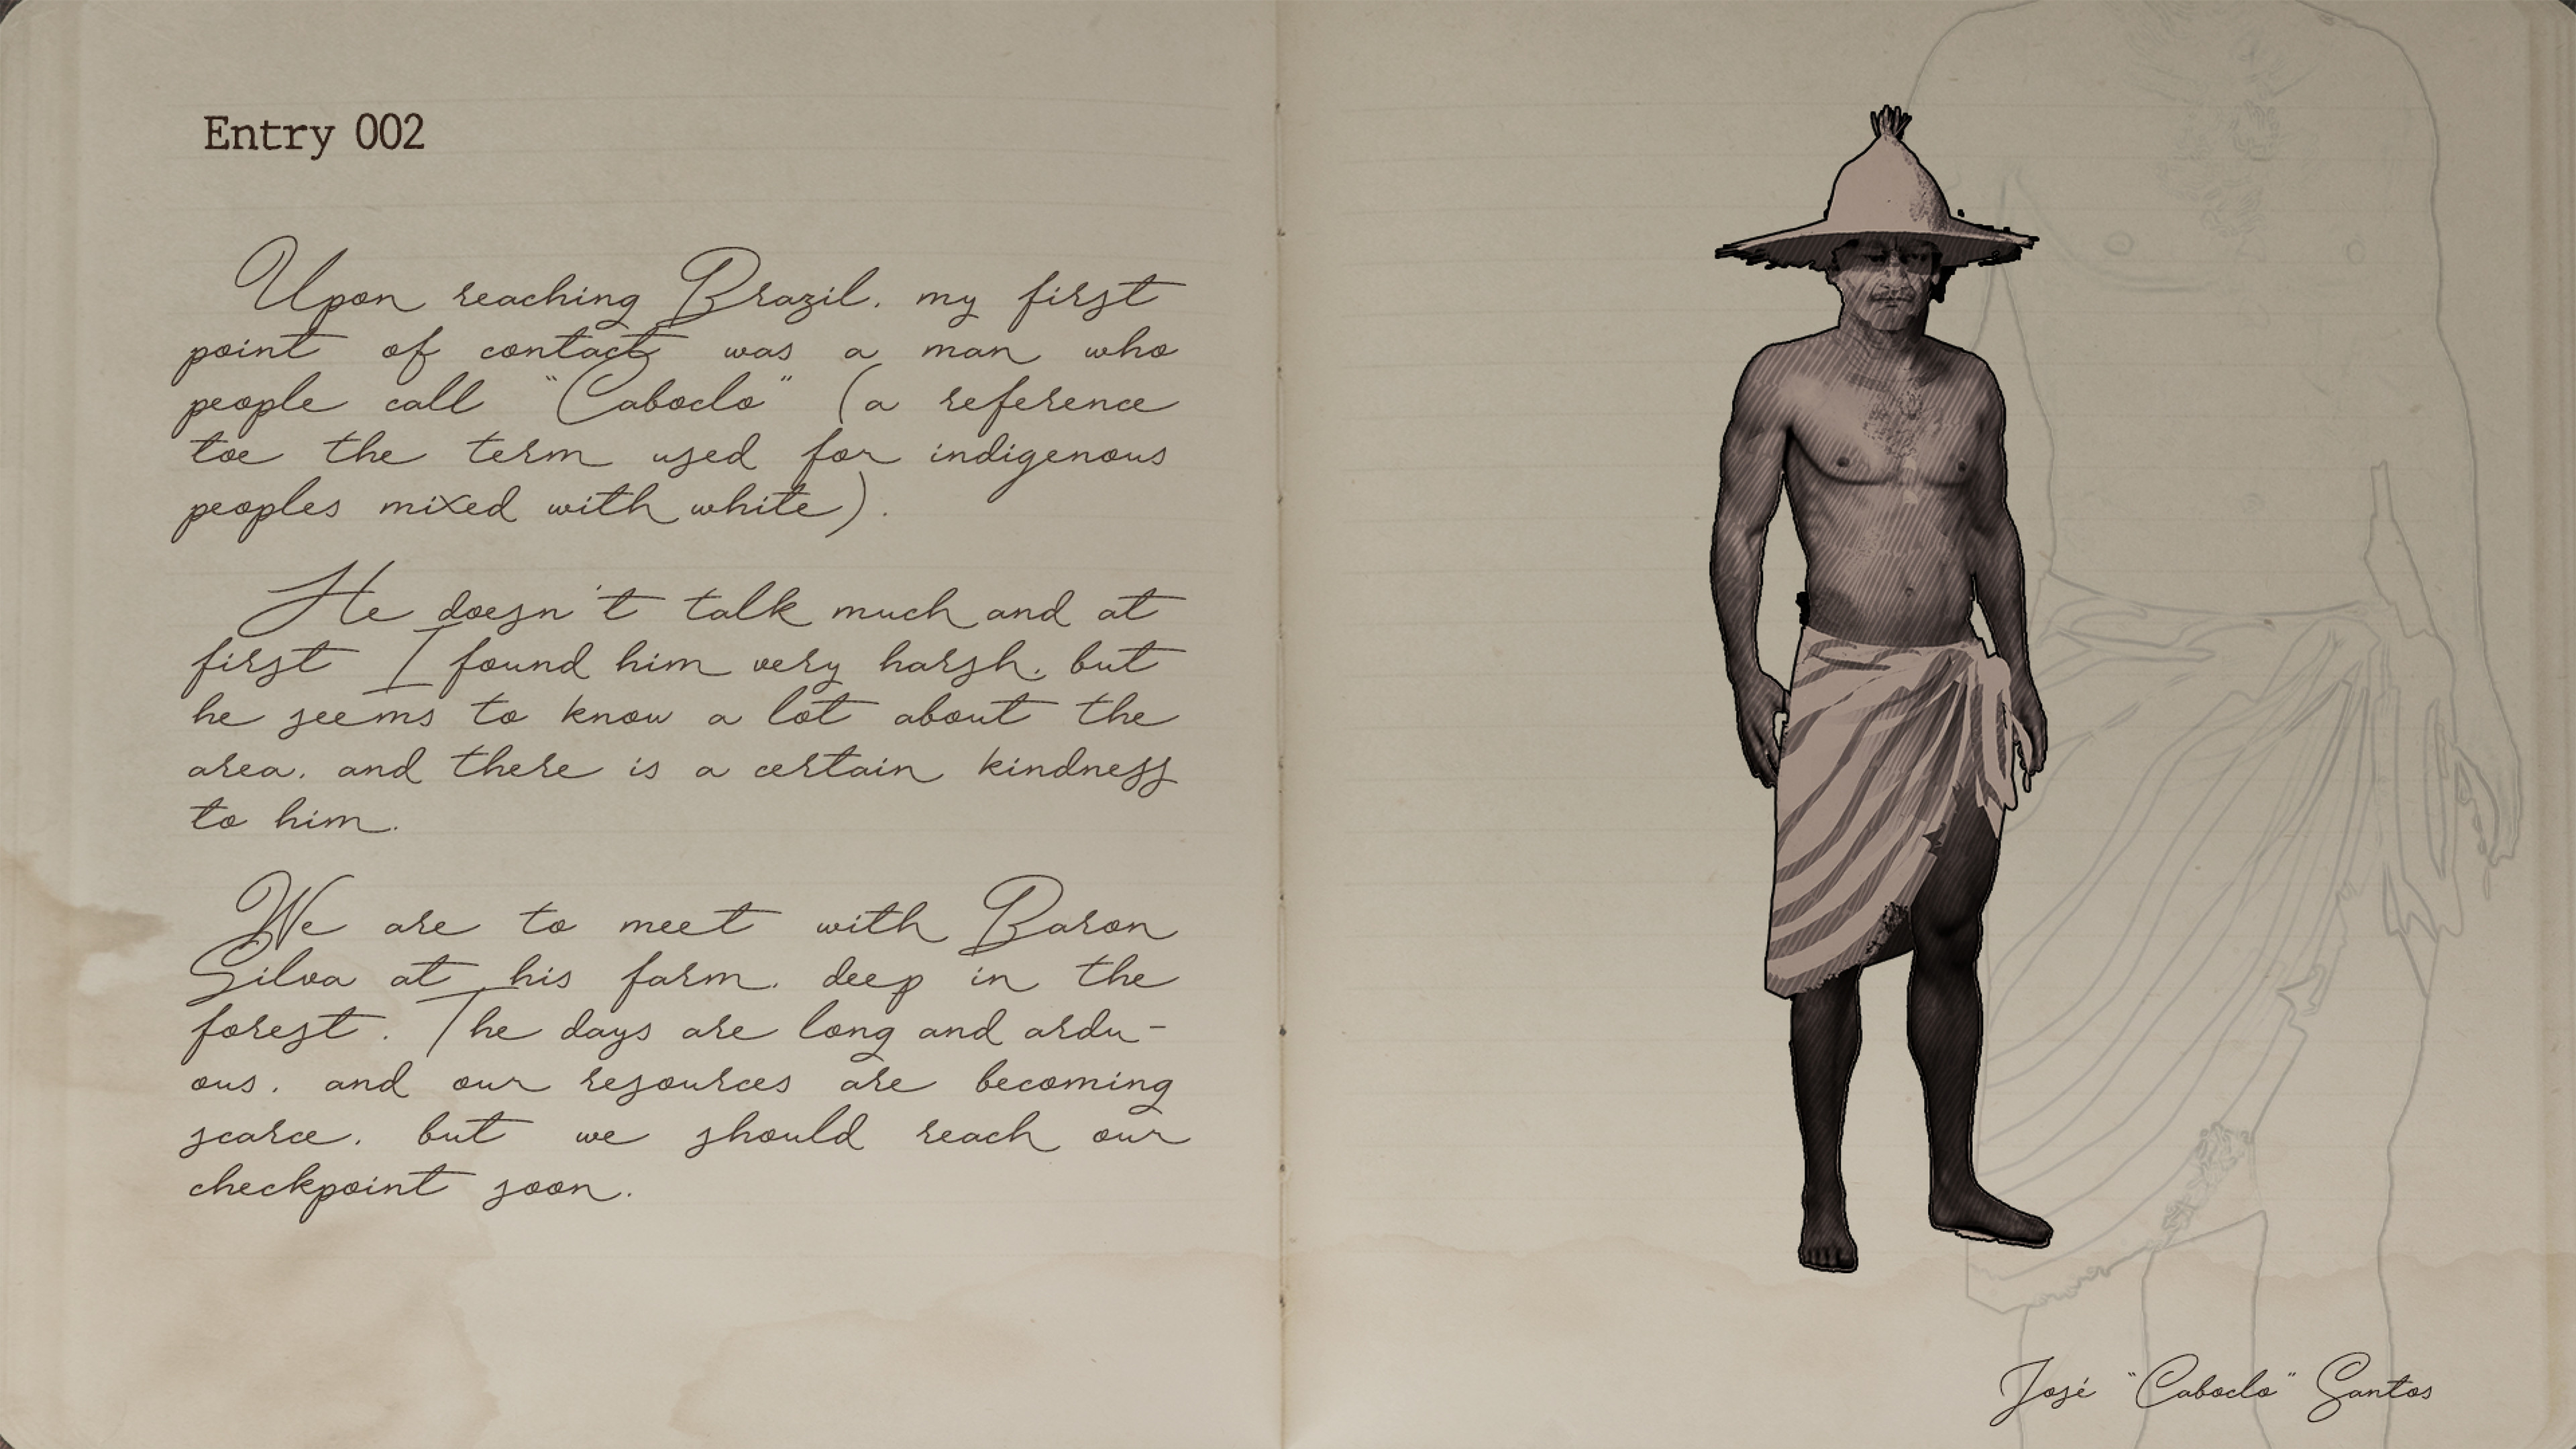 Entry 002
Upon reaching Brazil, my first
point of contact was a man who
people call "Caboclo" (a reference
toe the term used for indigenous
peoples mixed with white).
He doesn't talk much and at
first I found him very harsh, but
he seems to know a lot about the
area, and there is a certain kindness
to him.
We are to meet with Baron
Silva at his farm, deep in the
forest. The days are long and ardu-
ous, and our resources are becoming
scarce, but we should reach our
checkpoint soon.
José "Caboclo" Santos